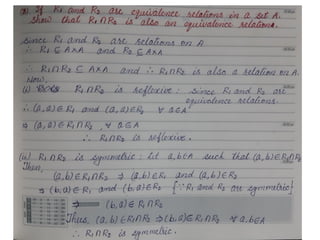 Q) If R1 and R2 are equivalence relations in a set A,
show that R1∩R2 is also an equivalence relations.
Since R1 and R2 are relations on A
∴ R1 ⊆ A×A and R2 ⊆ A×A
∴ R1∩R2 ⊆ A×A and ∴ R1∩R2 is also a relation on A.
Now,
(i) R1∩R2 is reflexive: since R1 and R2 are
equivalence relations
∴ (a,a)∈R1 and (a,a)∈R2 ∀ a∈A
⇒ (a,a)∈R1∩R2, ∀ a∈A
∴ R1∩R2 is reflexive.
(ii) R1∩R2 is symmetric: Let a,b∈A such that (a,b)∈R1∩R2
Then,
(a,b)∈R1∩R2 ⇒ (a,b)∈R1 and (a,b)∈R2
⇒ (b,a)∈R1 and (b,a)∈R2 {∵ R1 and R2 are symmetric}
⇒ (b,a)∈R1∩R2
Thus, (a,b)∈R1∩R2 ⇒ (b,a)∈R1∩R2 ∀ a,b∈A
∴ R1∩R2 is symmetric.